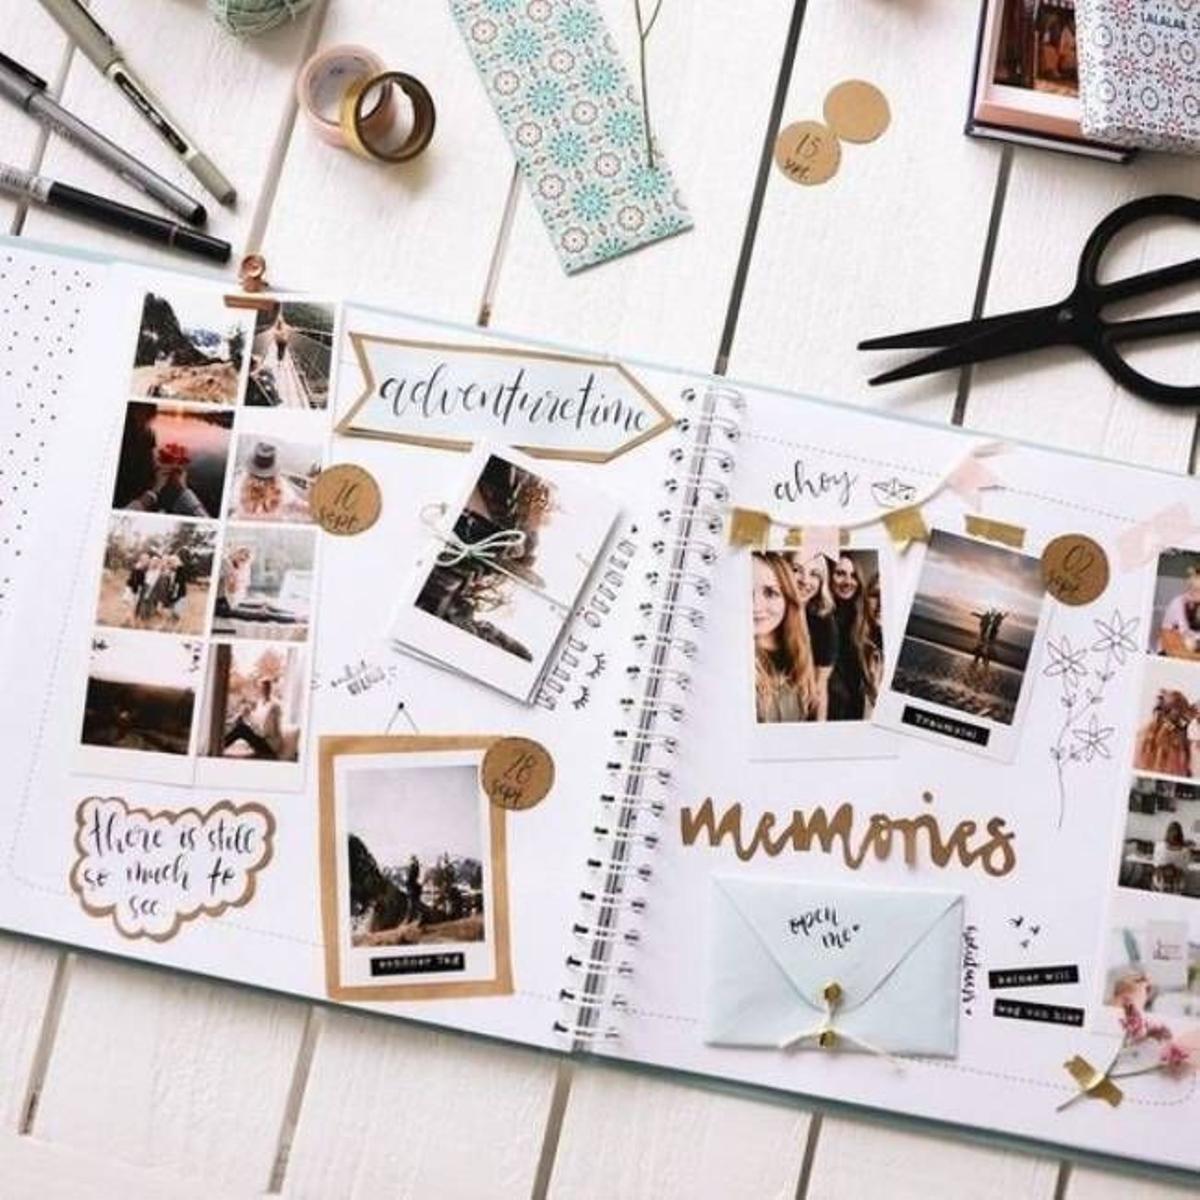 LALALAB
15
adventuretime
10
sept
ahoy
02
sept
28
sept
there is still
so much to
see
schöner Tag
memories
open
me
keiner will
weg von hier